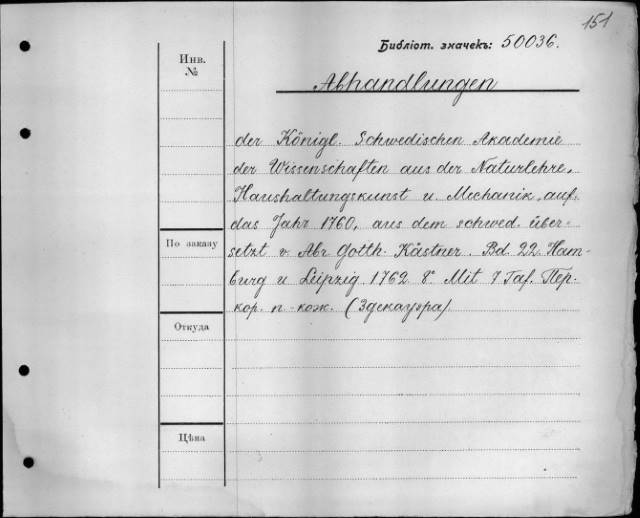 151
Библіот. значекъ: 50036.
Инв.
№
Abhandlungen
der Königl. Schwedischen Akademie
der Wissenschaften aus der Naturlehre,
Haushaltungskunst u. Mechanik, auf
das Jahr 1760, aus dem schwed. über-
setzt v. Abr Gotth. Kästner. Bd. 22. Ham-
burg u Leipzig. 1762. 8° Mit 7 Taf. Пер.
кор. п-кож. (Здекауэра)
По заказу
Откуда
Цѣна